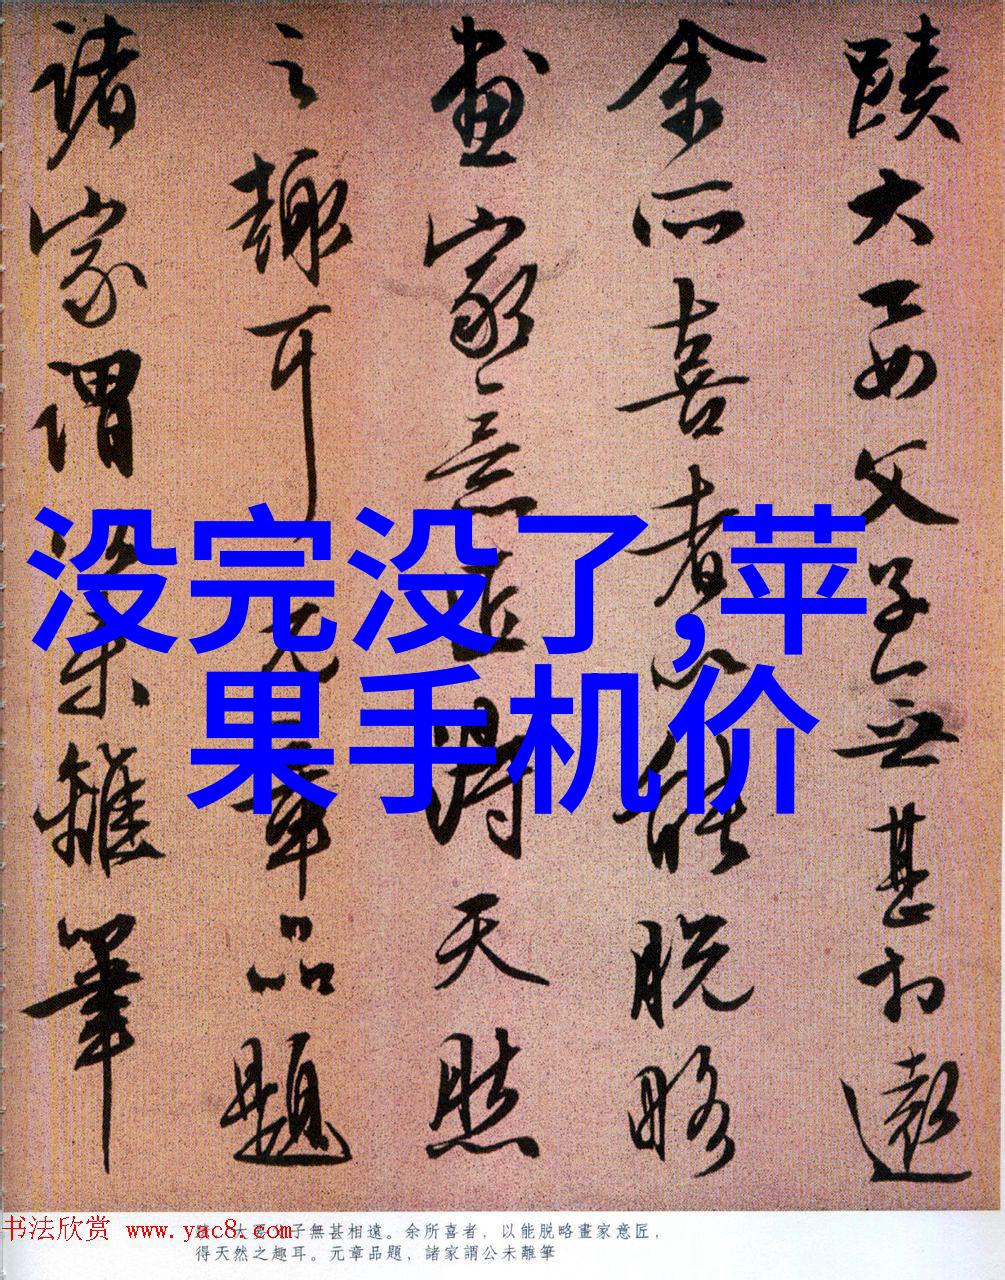 蹟大要父子無甚相遠
余所喜者以能脱略
畫家意匠得天然
之趣耳元章品題
諸家謂公未離筆
没完没了,苹
果手机价
书法欣赏 www.yac8.com
大要父子無甚相遠。余所喜者，以能脱略畫家意匠，
得天然之趣耳。元章品題，諸家謂公未離筆